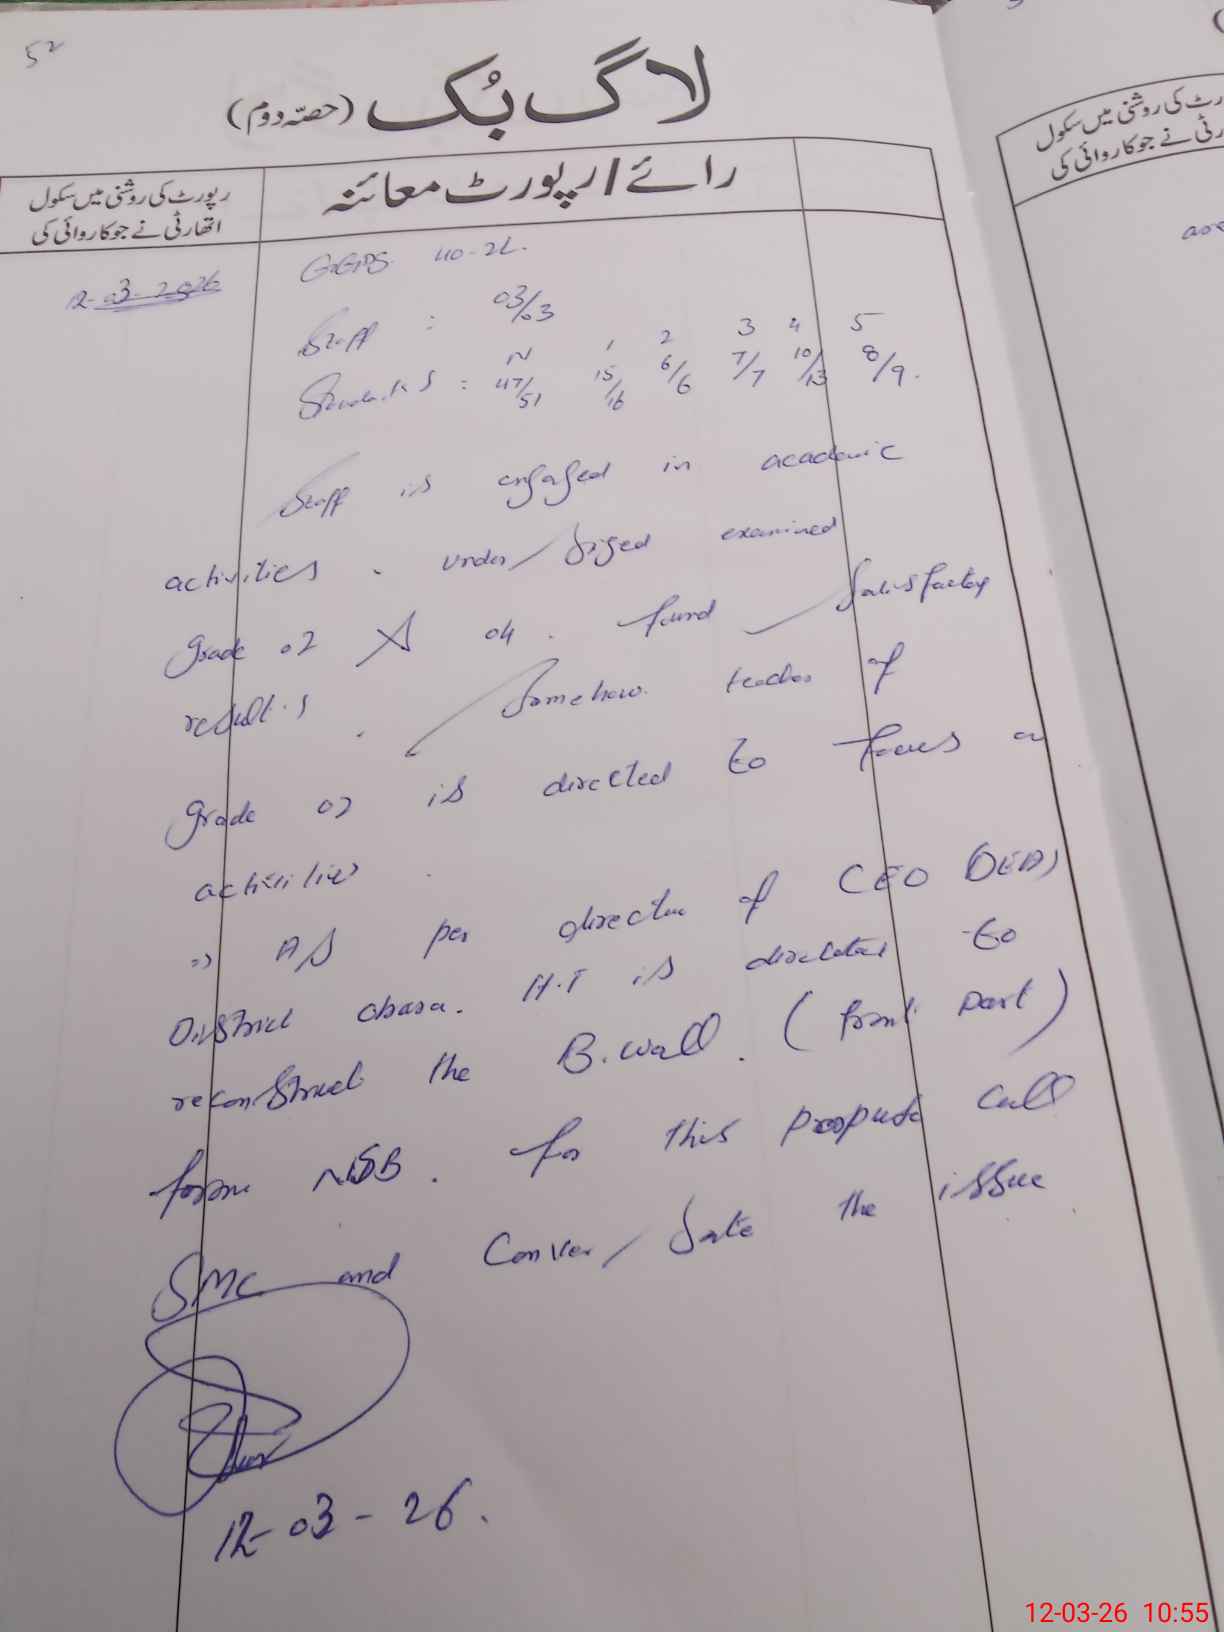 52
لاگ بُک (حصّہ دوم)
رپورٹ کی روشنی میں سکول
اتھارٹی نے جو کاروائی کی
رائے / رپورٹ معائنہ
12-03-2026
GGPS 40-2L.
Staff : 03/03
N 1 2 3 4 5
Students : 47/51 15/16 6/6 7/7 10/13 8/9.
Staff is engaged in academic
activities. under/siged examined
grade 02 & 04. found satisfactory
results. Somehow teacher of
grade 02 is directed to focus on
activities.
=> As per direction of CEO (DEA)
District okara. H.T is directed to
reconstruct the B.wall. (front part)
form NSB. for this propuse call
SMC and Conver/sate the issue
12-03-26.
رٹ کی روشنی میں سکول
رٹی نے جو کاروائی کی
12-03-26 10:55